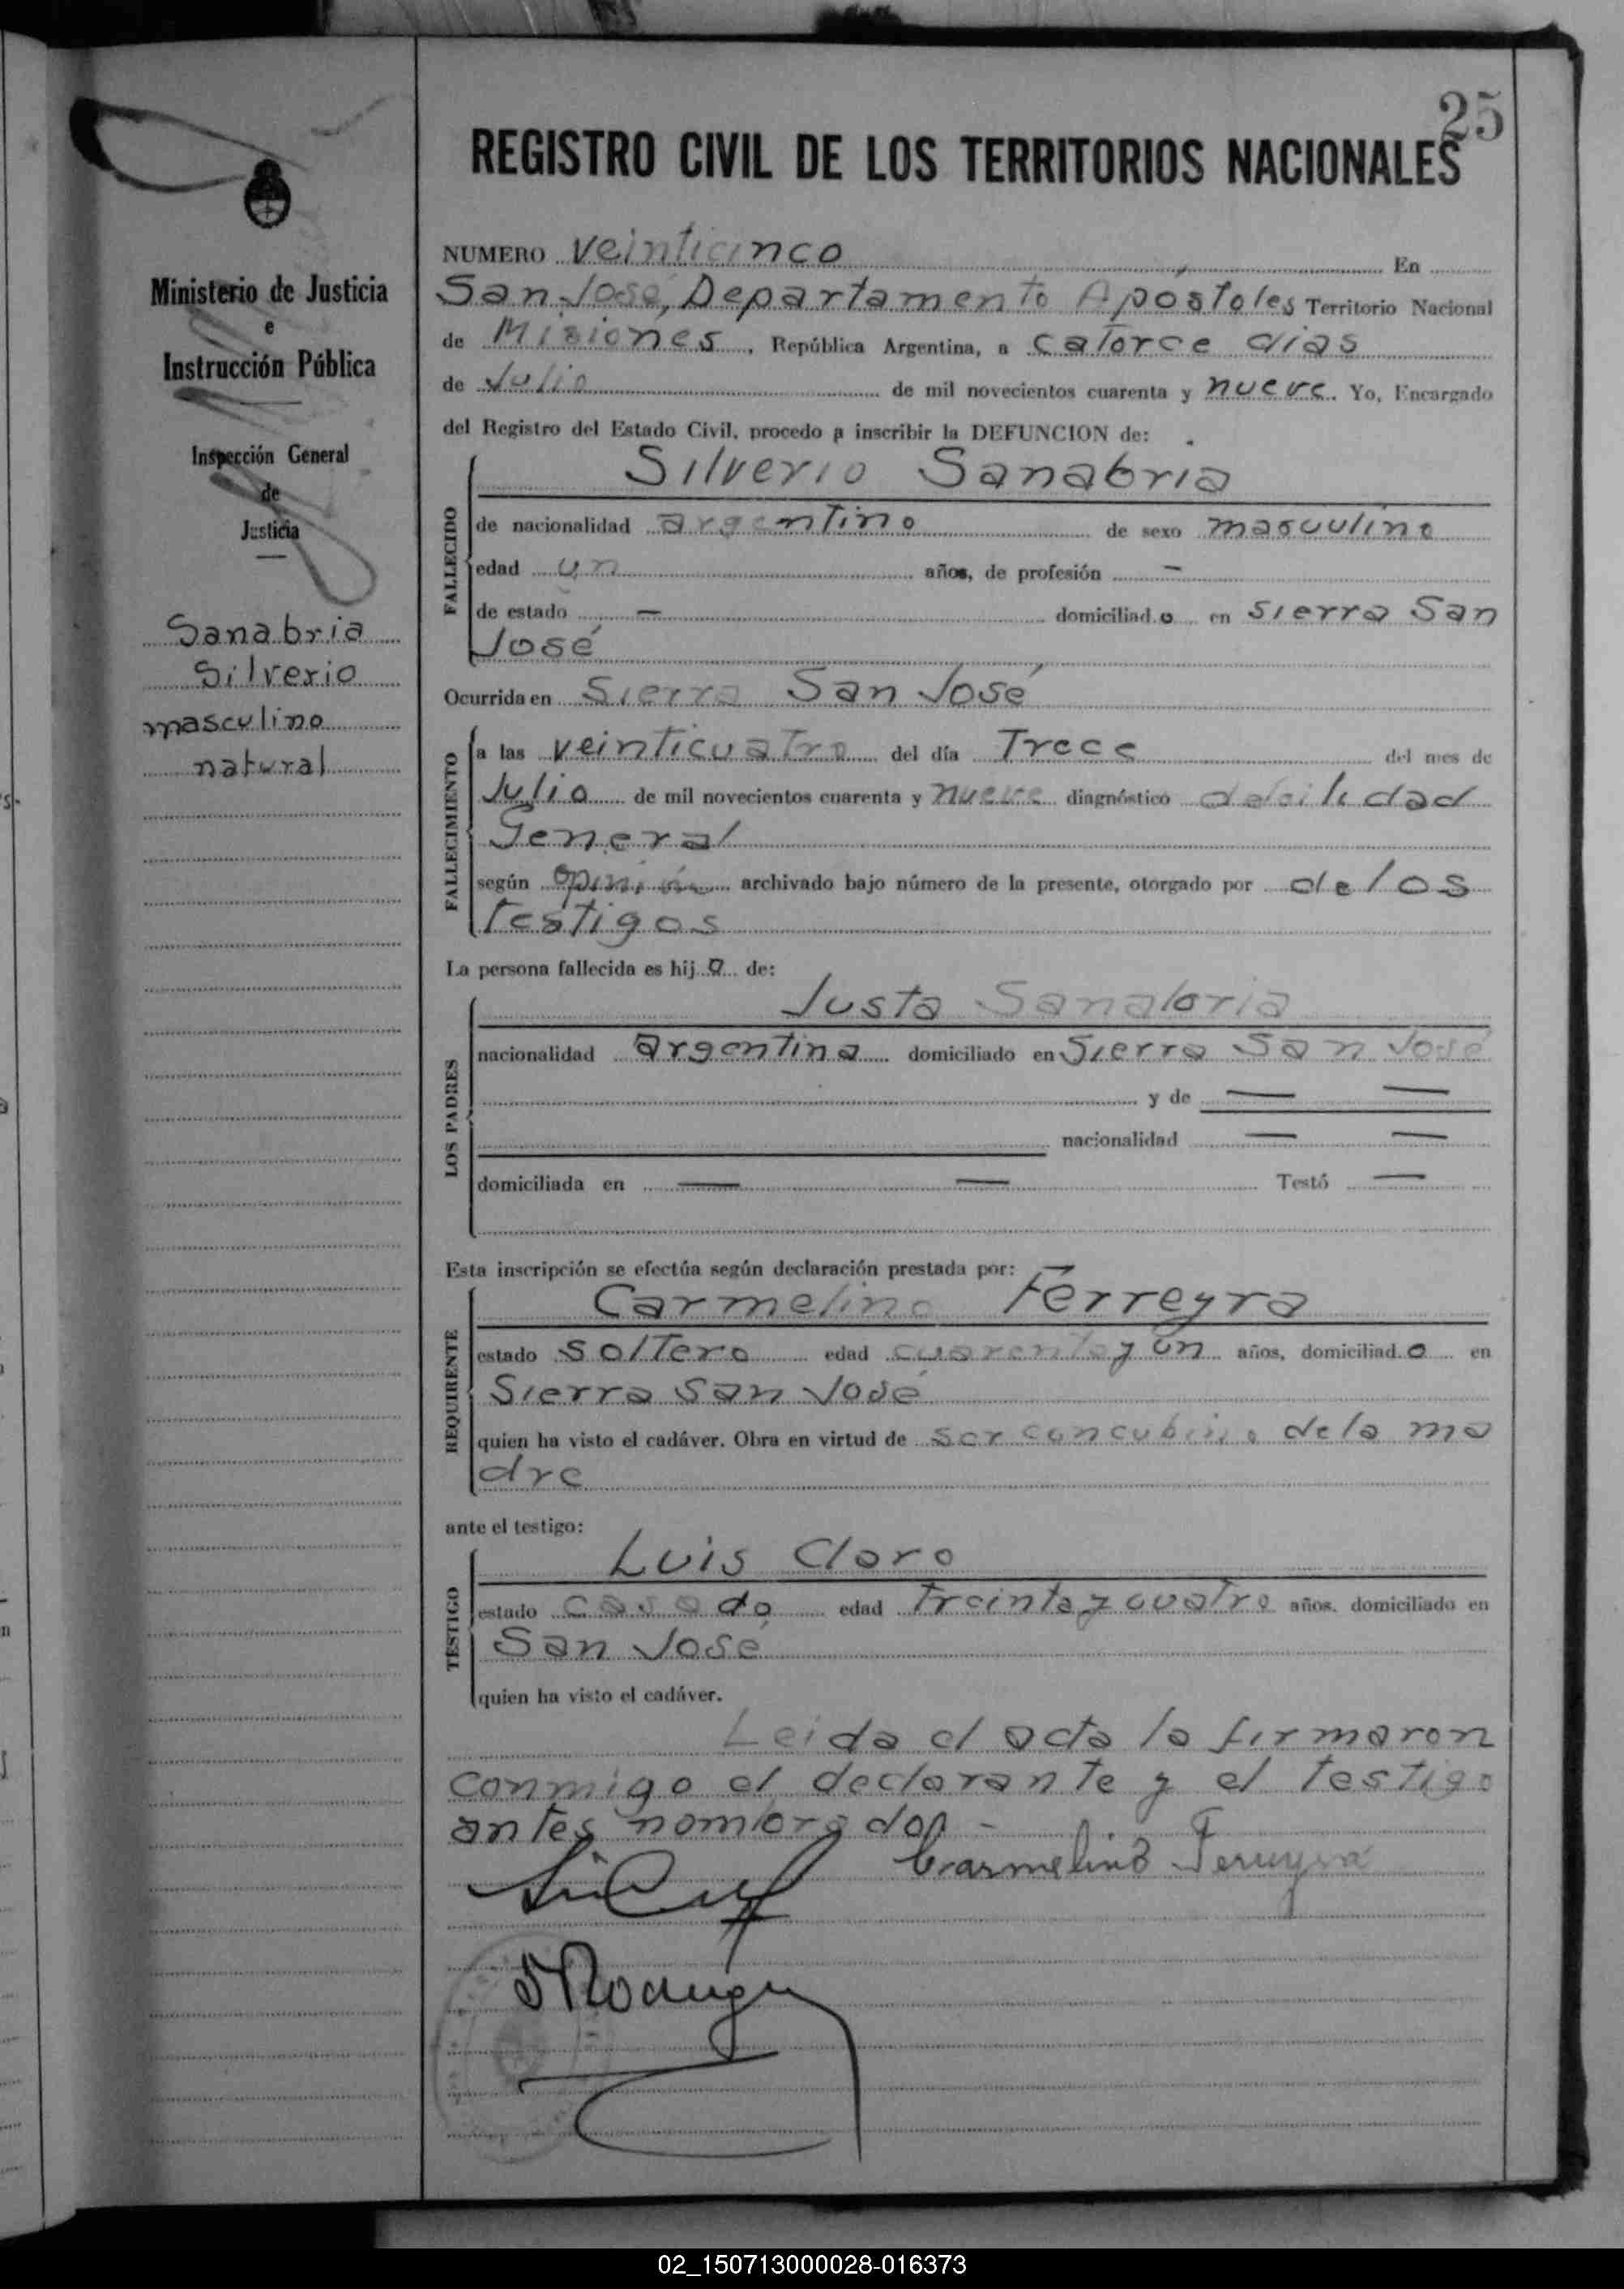 25
REGISTRO CIVIL DE LOS TERRITORIOS NACIONALES
Ministerio de Justicia
e
Instrucción Pública
Inspección General
de
Justicia
Sanabria
Silverio
masculino
natural
NUMERO veinticinco En
San José, Departamento Apóstoles Territorio Nacional
de Misiones, República Argentina, a catorce dias
de Julio de mil novecientos cuarenta y nueve. Yo, Encargado
del Registro del Estado Civil, procedo a inscribir la DEFUNCION de:
FALLECIDO
Silverio Sanabria
de nacionalidad argentino de sexo masculino
edad un años, de profesión —
de estado — domiciliado en Sierra San
José
Ocurrida en Sierra San José
FALLECIMIENTO
a las veinticuatro del día Trece del mes de
Julio de mil novecientos cuarenta y nueve diagnóstico debilidad
General
según opinión archivado bajo número de la presente, otorgado por de los
testigos
La persona fallecida es hijo de:
LOS PADRES
Justa Sanabria
nacionalidad argentina domiciliado en Sierra San José
y de — —
nacionalidad — —
domiciliada en — — Testó —
Esta inscripción se efectúa según declaración prestada por:
REQUIRENTE
Carmelino Ferreyra
estado soltero edad cuarenta y un años, domiciliado en
Sierra San José
quien ha visto el cadáver. Obra en virtud de ser concubino de la ma
dre
ante el testigo:
TESTIGO
Luis Claro
estado casado edad treinta y cuatro años, domiciliado en
San José
quien ha visto el cadáver.
Leida el acta la firmaron
conmigo el declarante y el testigo
antes nombrados -
Carmelino Ferreyra
02_150713000028-016373